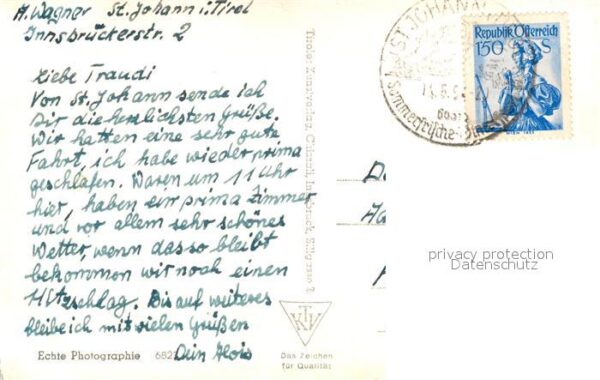 A. Wagner St. Johann i. Tirol
Innsbruckerstr. 2
Liebe Traudi
Von St. Johann sende ich
Dir die herzlichsten Grüße.
Wir hatten eine sehr gute
Fahrt, ich habe wieder prima
geschlafen. Waren um 11 Uhr
hier, haben ein prima Zimmer
und vor allem sehr schönes
Wetter, wenn das so bleibt
bekommen wir noch einen
Hitzschlag. Bis auf weiteres
bleibe ich mit vielen Grüßen
Dein Alois
Echte Photographie 682
Tiroler Kunstverlag, Chizzali, Innsbruck, Stilgasse
TKV
Das Zeichen
für Qualität
ST. JOHANN
Sommerfrische
Republik Österreich
1.50 S
WIEN
privacy protection
Datenschutz